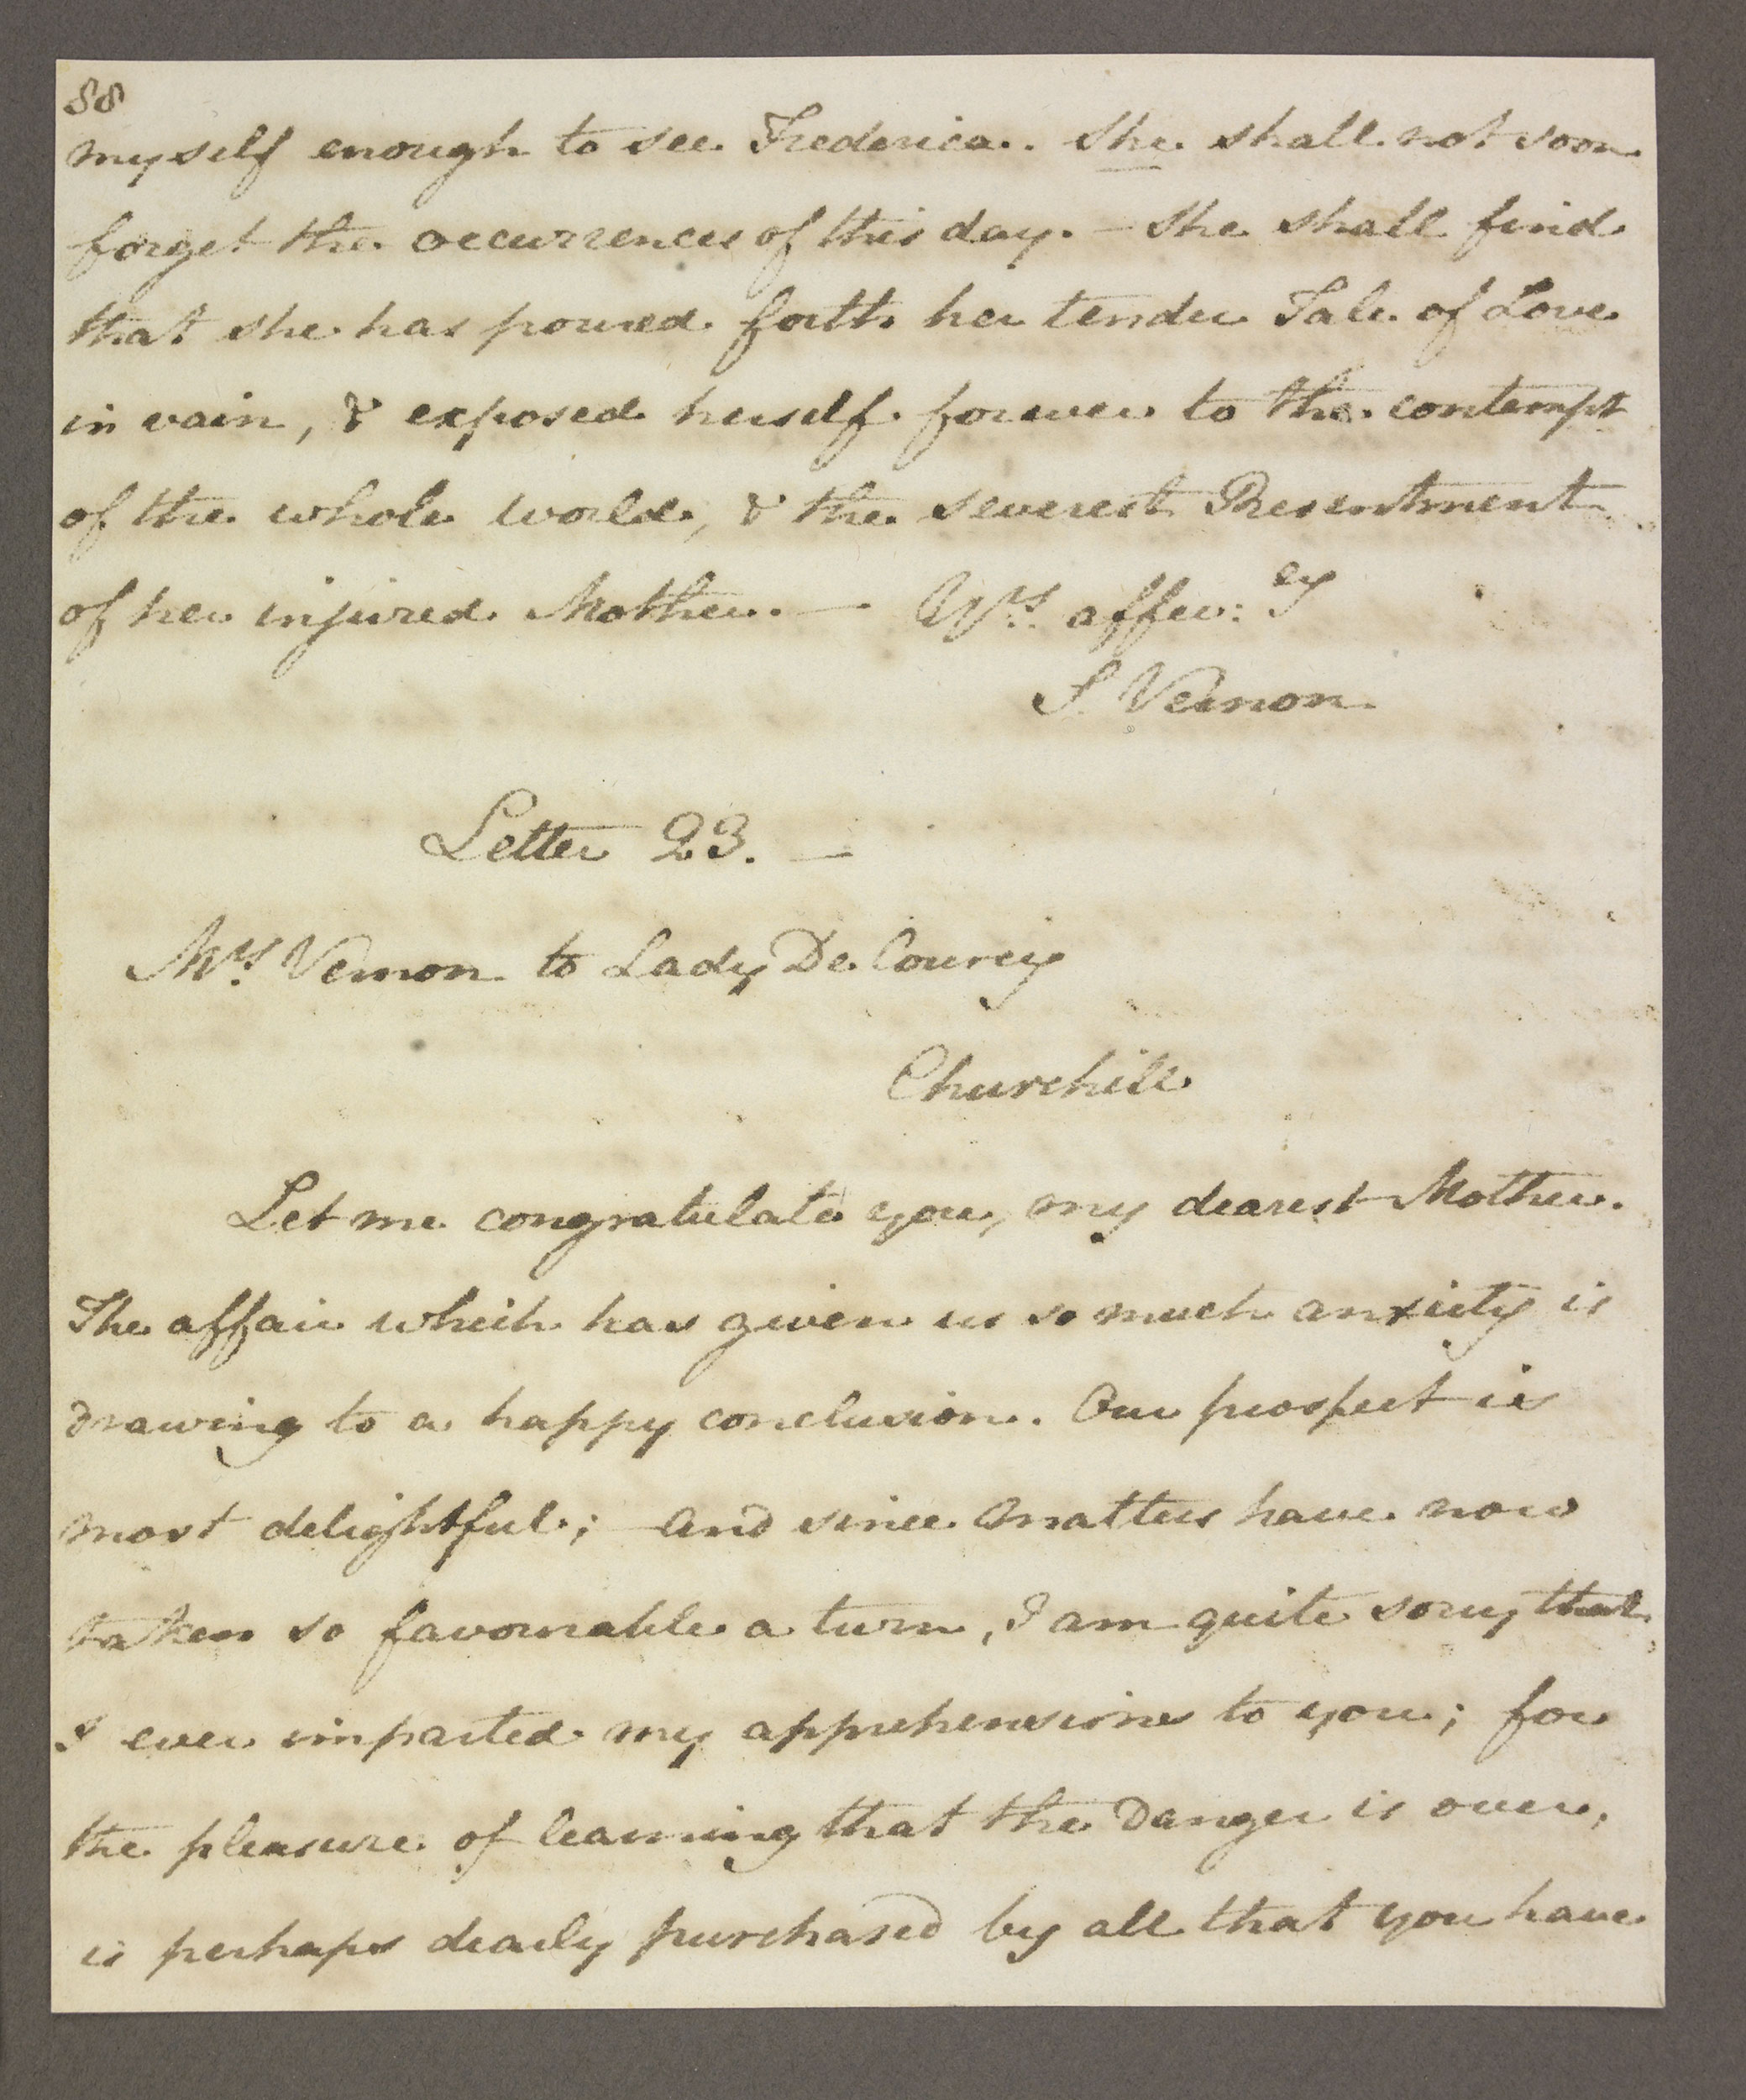 88
myself enough to see Frederica. She shall not soon
forget the occurrences of this day. – She shall find
that she has poured forth her tender Tale of Love
in vain, & exposed herself forever to the contempt
of the whole world, & the severest Resentment
of her injured Mother. — Yrs. affec:ly
S. Vernon
Letter 23. —
Mrs. Vernon to Lady De Courcy
Churchill
Let me congratulate you, my dearest Mother.
The affair which has given us so much anxiety is
drawing to a happy conclusion. Our prospect is
most delightful; – and since matters have now
taken so favourable a turn, I am quite sorry that
I ever imparted my apprehensions to you; for
the pleasure of learning that the danger is over,
is perhaps dearly purchased by all that you have